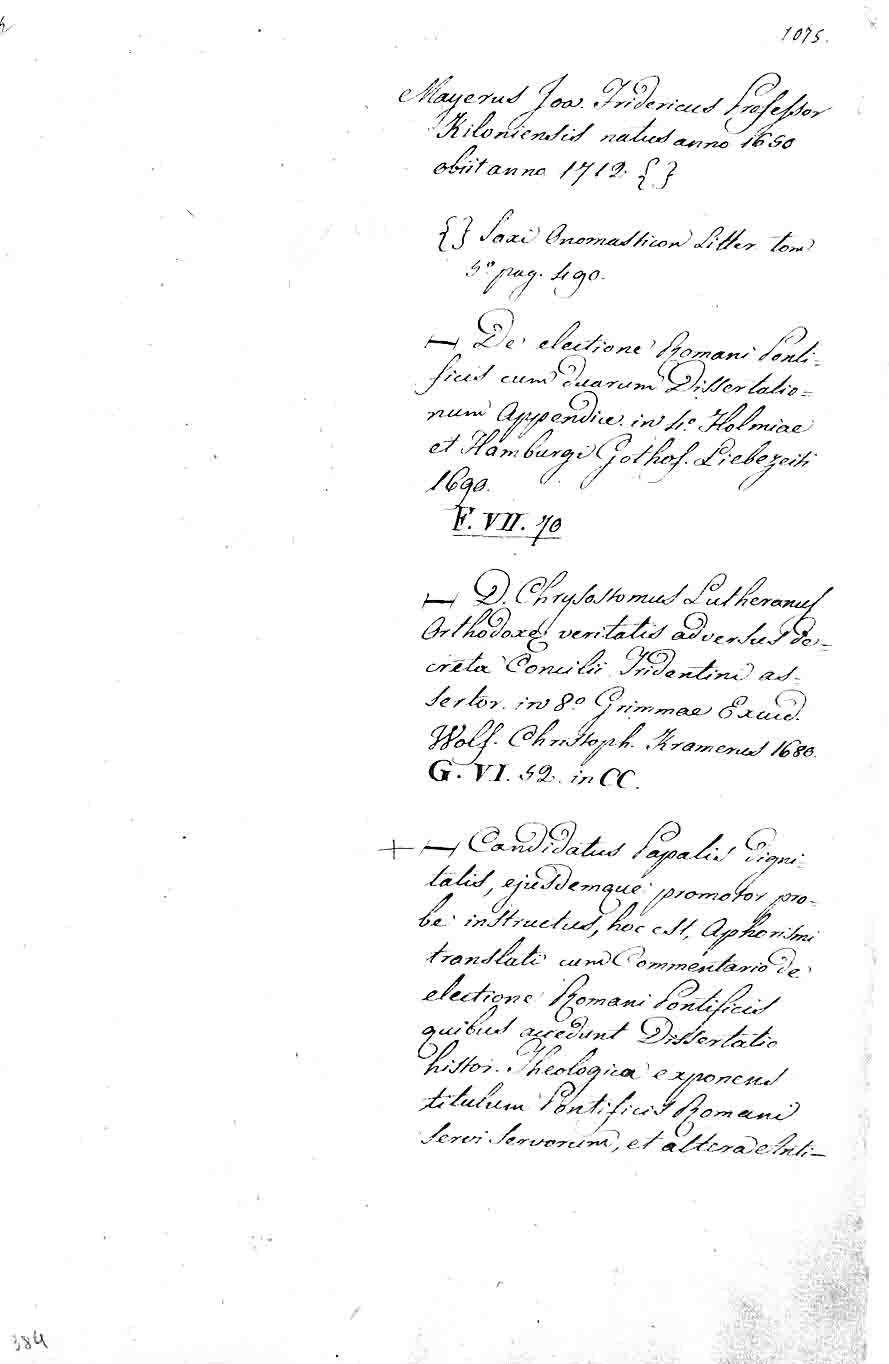 1075.
Mayerus Joa. Fridericus Professor
Kiloniensis natus anno 1650
obiit anno 1712. { }
{ } Saxi Onomasticon Litter tom
5º pag. 490.
De electione Romani Ponti=
ficis cum duarum Dissertatio=
num Appendice. in 4º Holmiae
et Hamburgi Gothof. Liebezeiti
1690.
F. VII. 70
D. Chrysostomus Lutheranus
Orthodoxe veritatis adversus de=
creta Concilii Tridentini as=
sertor. in 8º Grimmae Excud.
Wolf. Christoph. Kramerus 1680.
G. VI. 52. in CC.
+ Candidatus Papalis digni=
tatis, ejusdemque promotor pro=
be instructus, hoc est, Aphorismi
translati cum Commentario de
electione Romani Pontificis
quibus accedunt Dissertatio
histor. Theologica exponens
titulum Pontificis Romani
servi servorum, et altera Anti-
384